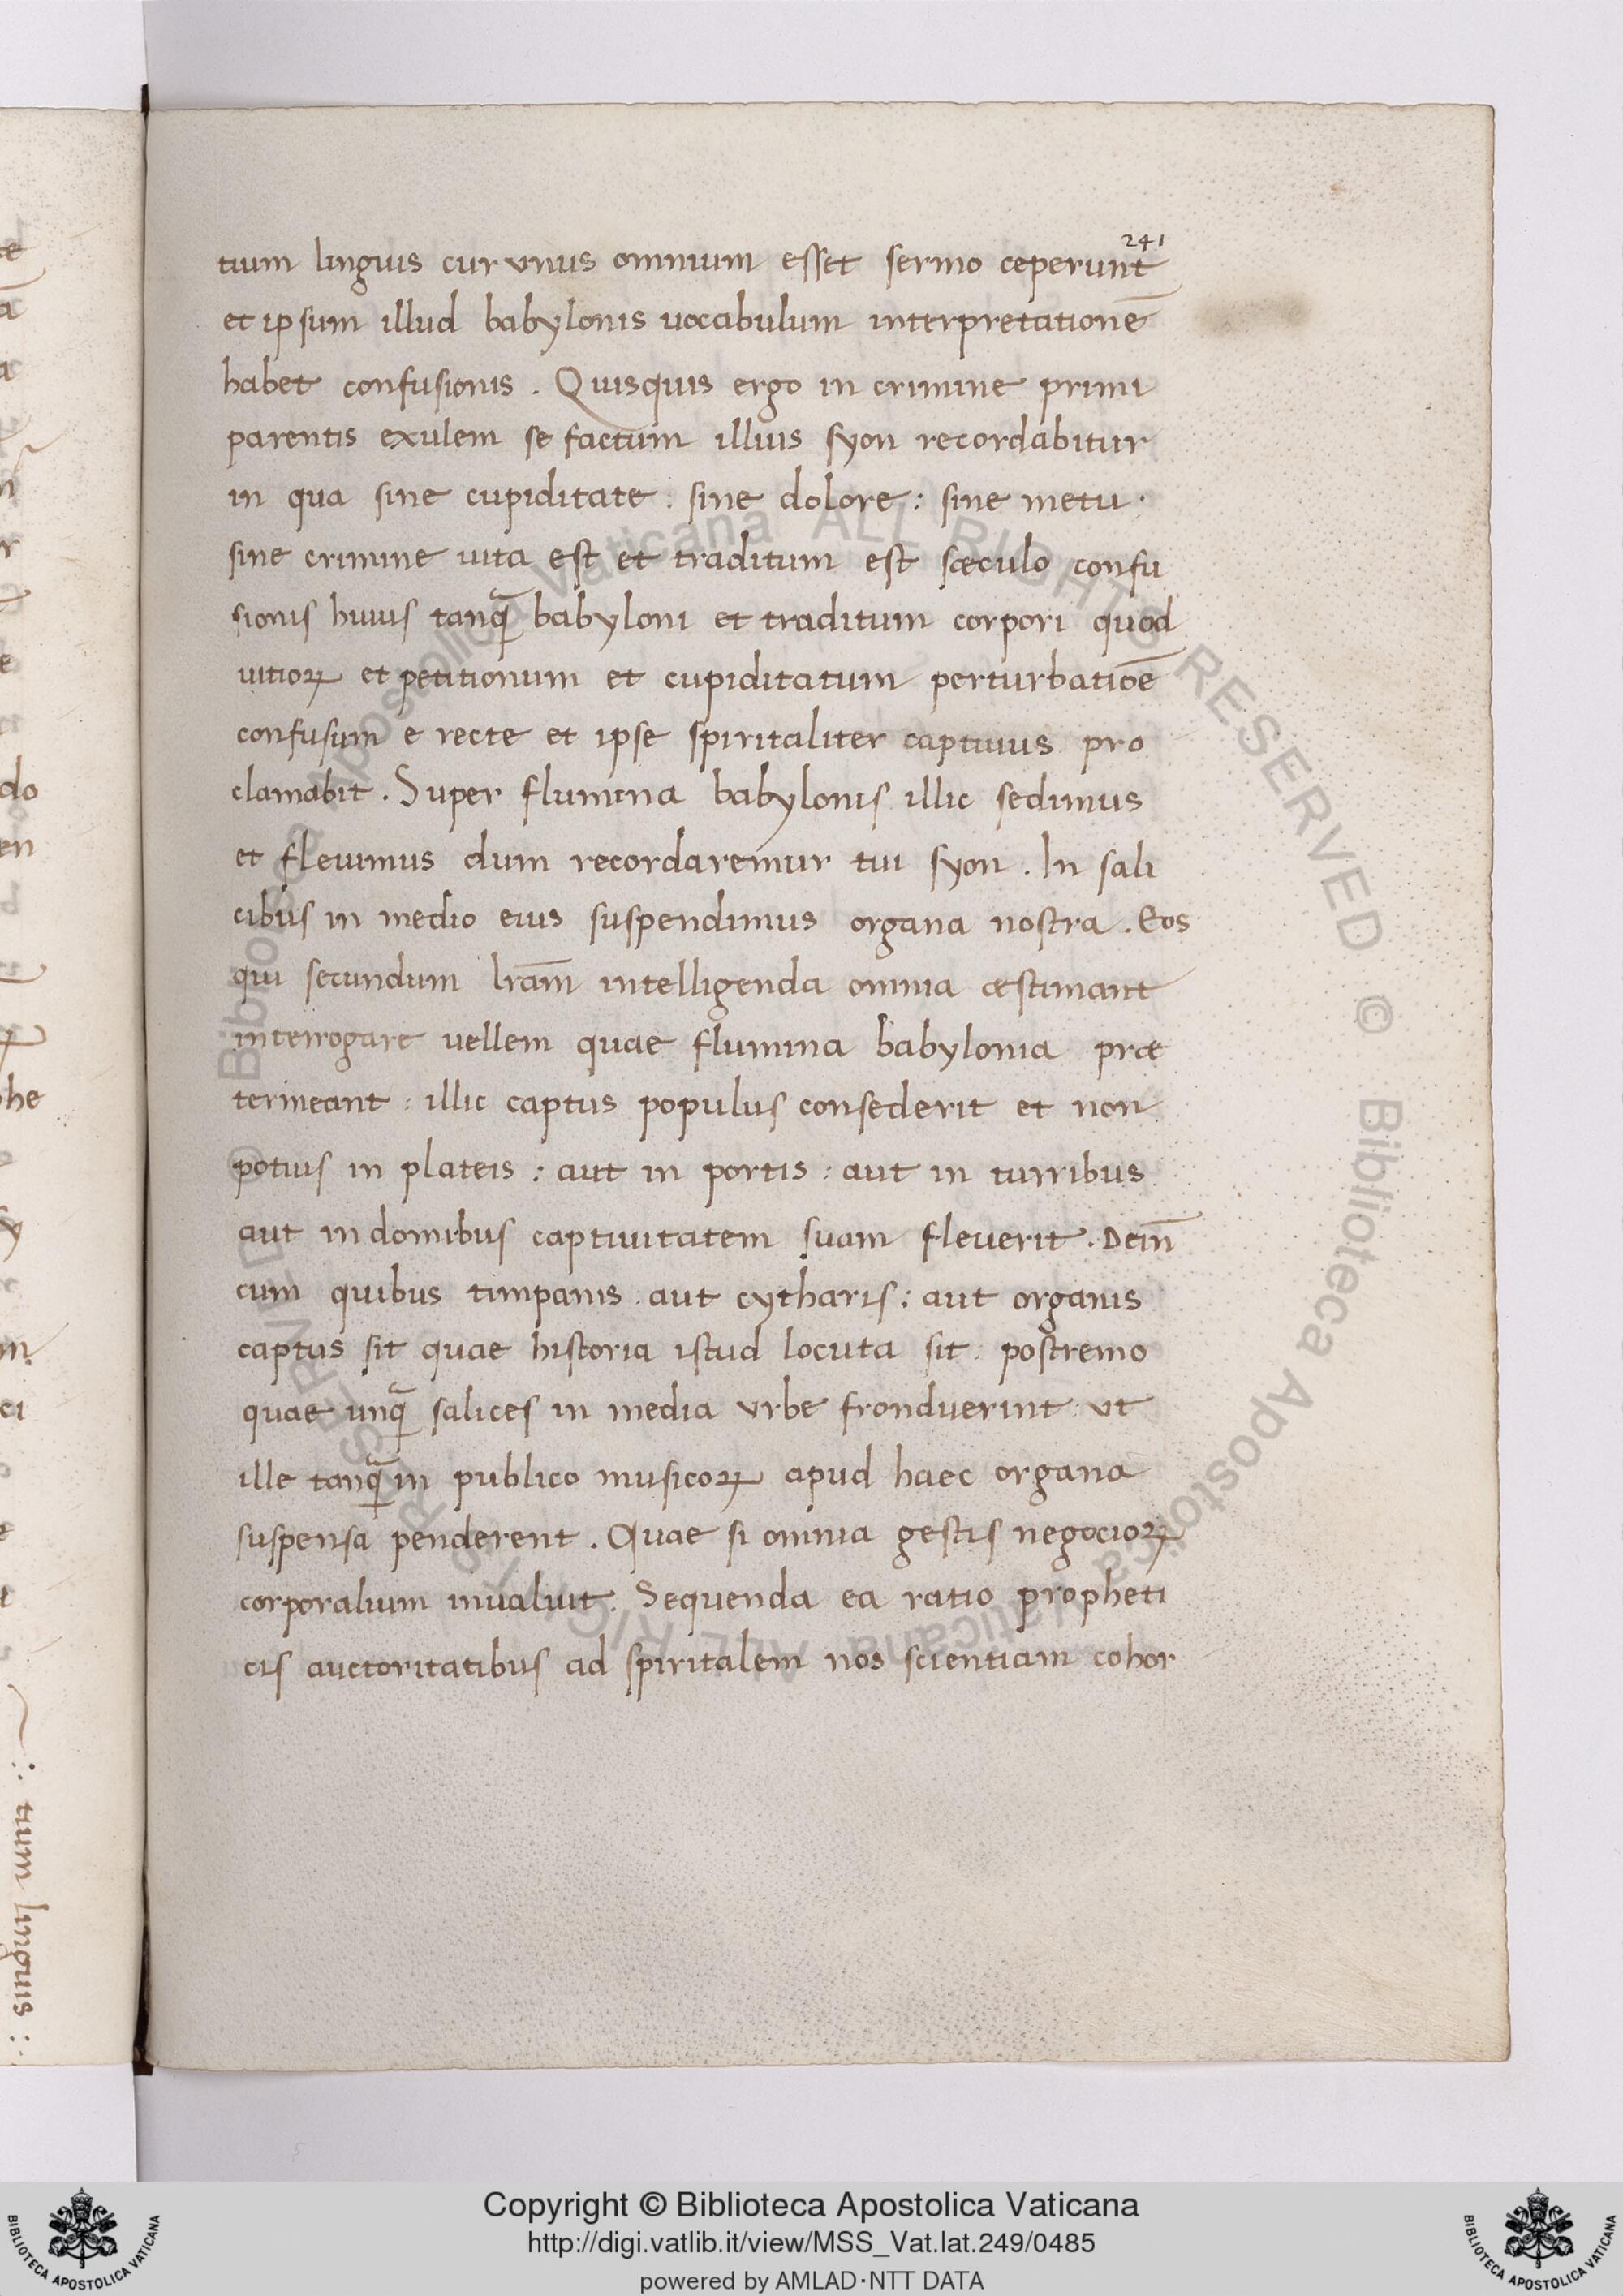 241
tium linguis cur vnus omnium esset sermo ceperunt
et ipsum illud babylonis uocabulum interpretationē
habet confusionis . Quisquis ergo in crimine primi
parentis exulem se factum illius syon recordabitur
in qua sine cupiditate : sine dolore : sine metu .
sine crimine uita est et traditum est sæculo confu
sionis huius tanq̄ babyloni et traditum corpori quod
uitioꝝ et petitionum et cupiditatum perturbatiōe
confusum e recte et ipse spiritaliter captiuus pro
clamabit . Super flumina babylonis illic sedimus
et fleuimus dum recordaremur tui syon . In sali
cibus in medio eius suspendimus organa nostra . Eos
qui secundum lram̄ intelligenda omnia æstimant
interrogare uellem quae flumina babylonia præ
termeant : illic captus populus consederit et non
potius in plateis : aut in portis : aut in turribus
aut in domibus captiuitatem suam fleuerit . Dein̄
cum quibus timpanis . aut cytharis : aut organis
captus sit quae historia istud locuta sit : postremo
quae unq̄ salices in media vrbe fronduerint : vt
ille tanq̄ in publico musicoꝝ apud haec organa
suspensa penderent . Quae si omnia gestis negocioꝝ
corporalium inualuit . Sequenda ea ratio propheti
cis auctoritatibus ad spiritalem nos scientiam cohor
:· tium linguis ::
Copyright © Biblioteca Apostolica Vaticana
http://digi.vatlib.it/view/MSS_Vat.lat.249/0485
powered by AMLAD·NTT DATA
BIBLIOTECA APOSTOLICA VATICANA
BIBLIOTECA APOSTOLICA VATICANA